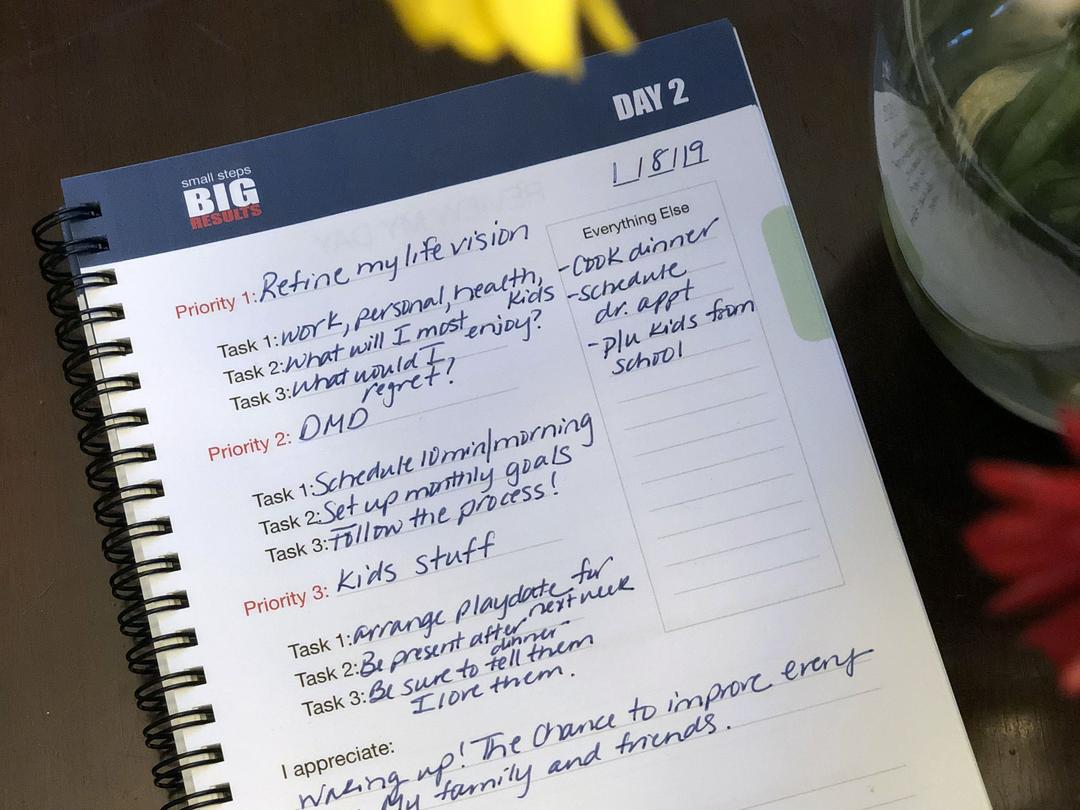 DAY 2
small steps
BIG
RESULTS
1/8/19
Priority 1: Refine my life vision
Task 1: work, personal, health,
kids
Task 2: What will I most enjoy?
Task 3: What would I
regret?
Priority 2: DMD
Task 1: Schedule 10min/morning
Task 2: Set up monthly goals
Task 3: Follow the process!
Priority 3: Kids stuff
Task 1: arrange playdate for
next week
Task 2: Be present after
dinner
Task 3: Be sure to tell them
I love them.
Everything Else
-Cook dinner
-schedule
dr. appt
-p/u kids from
school
I appreciate:
Waking up! The chance to improve every
My family and friends.